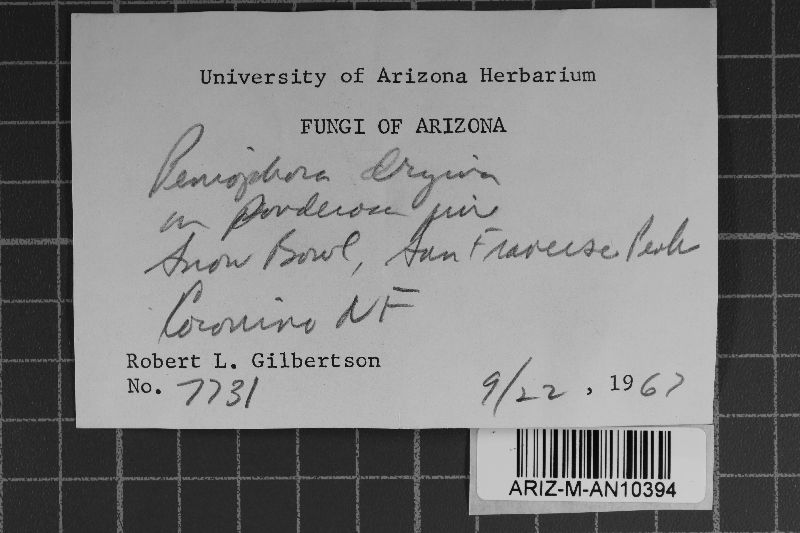 University of Arizona Herbarium
FUNGI OF ARIZONA
Peniophora
on Ponderosa pine
Snow Bowl, San Francisco Peak
Coconino NF
Robert L. Gilbertson
No. 7731 9/22, 1967
ARIZ-M-AN10394